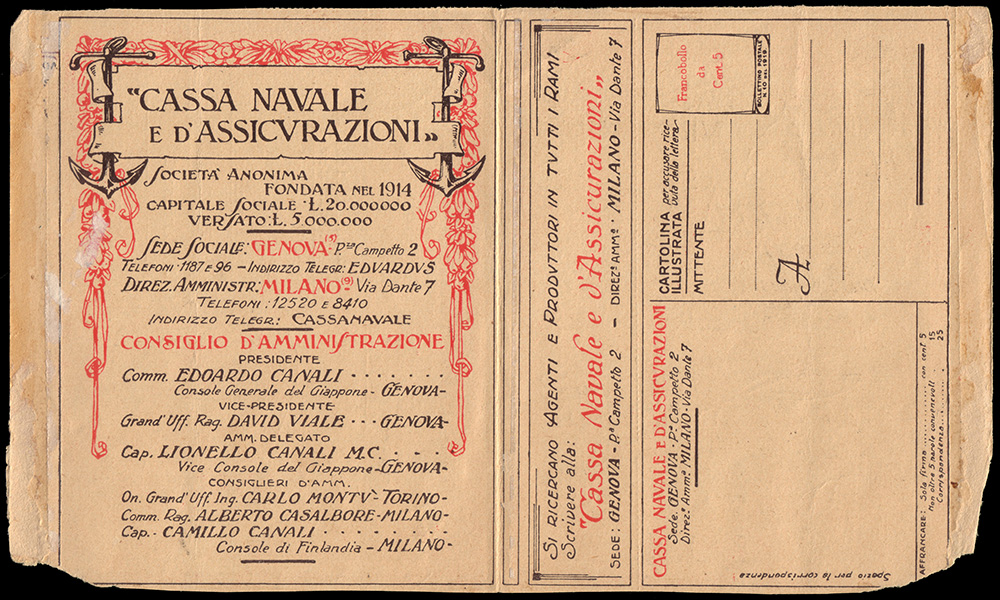 "CASSA NAVALE
E D'ASSICVRAZIONI"
SOCIETA' ANONIMA
FONDATA NEL 1914
CAPITALE SOCIALE: Ł. 20.000000
VERSATO: Ł. 5.000.000
SEDE SOCIALE: GENOVA(5)- P.zza Campetto 2
TELEFONI: 1187 E 96 - INDIRIZZO TELEGR: EDVARDVS
DIREZ. AMMINISTR: MILANO(9) Via Dante 7
TELEFONI: 12520 E 8410
INDIRIZZO TELEGR.: CASSANAVALE
CONSIGLIO D'AMMINISTRAZIONE
PRESIDENTE
Comm. EDOARDO CANALI .......
Console Generale del Giappone - GENOVA-
VICE-PRESIDENTE
Grand'Uff. Rag. DAVID VIALE ... GENOVA-
AMM. DELEGATO
Cap. LIONELLO CANALI M.C. ....
Vice Console del Giappone - GENOVA-
CONSIGLIERI D'AMM.
On. Grand'Uff. Ing. CARLO MONTV'- TORINO-
Comm. Rag. ALBERTO CASALBORE-MILANO-
Cap.- CAMILLO CANALI ........
Console di Finlandia - MILANO-
SI RICERCANO AGENTI E PRODVTTORI IN TVTTI I RAMI
Scrivere alla:
"Cassa Navale e d'Assicurazioni„
SEDE: GENOVA - P.a Campetto 2 - DIREZ.e AMM.a: MILANO - Via Dante 7
Francobollo
da
Cent. 5
BOLLETTINO POSTALE
N. 10 DEL 1919
CARTOLINA
ILLUSTRATA
per accusare rice-
vuta della lettera
MITTENTE
A
CASSA NAVALE E D'ASSICVRAZIONI
Sede: GENOVA P.a Campetto 2
Direz.e Amm.a MILANO - Via Dante 7
AFFRANCARE: Sola firma .......... con cent. 5
Non oltre 5 parole convenevoli - 15
Corrispondenza .......... 25
Spazio per la corrispondenza